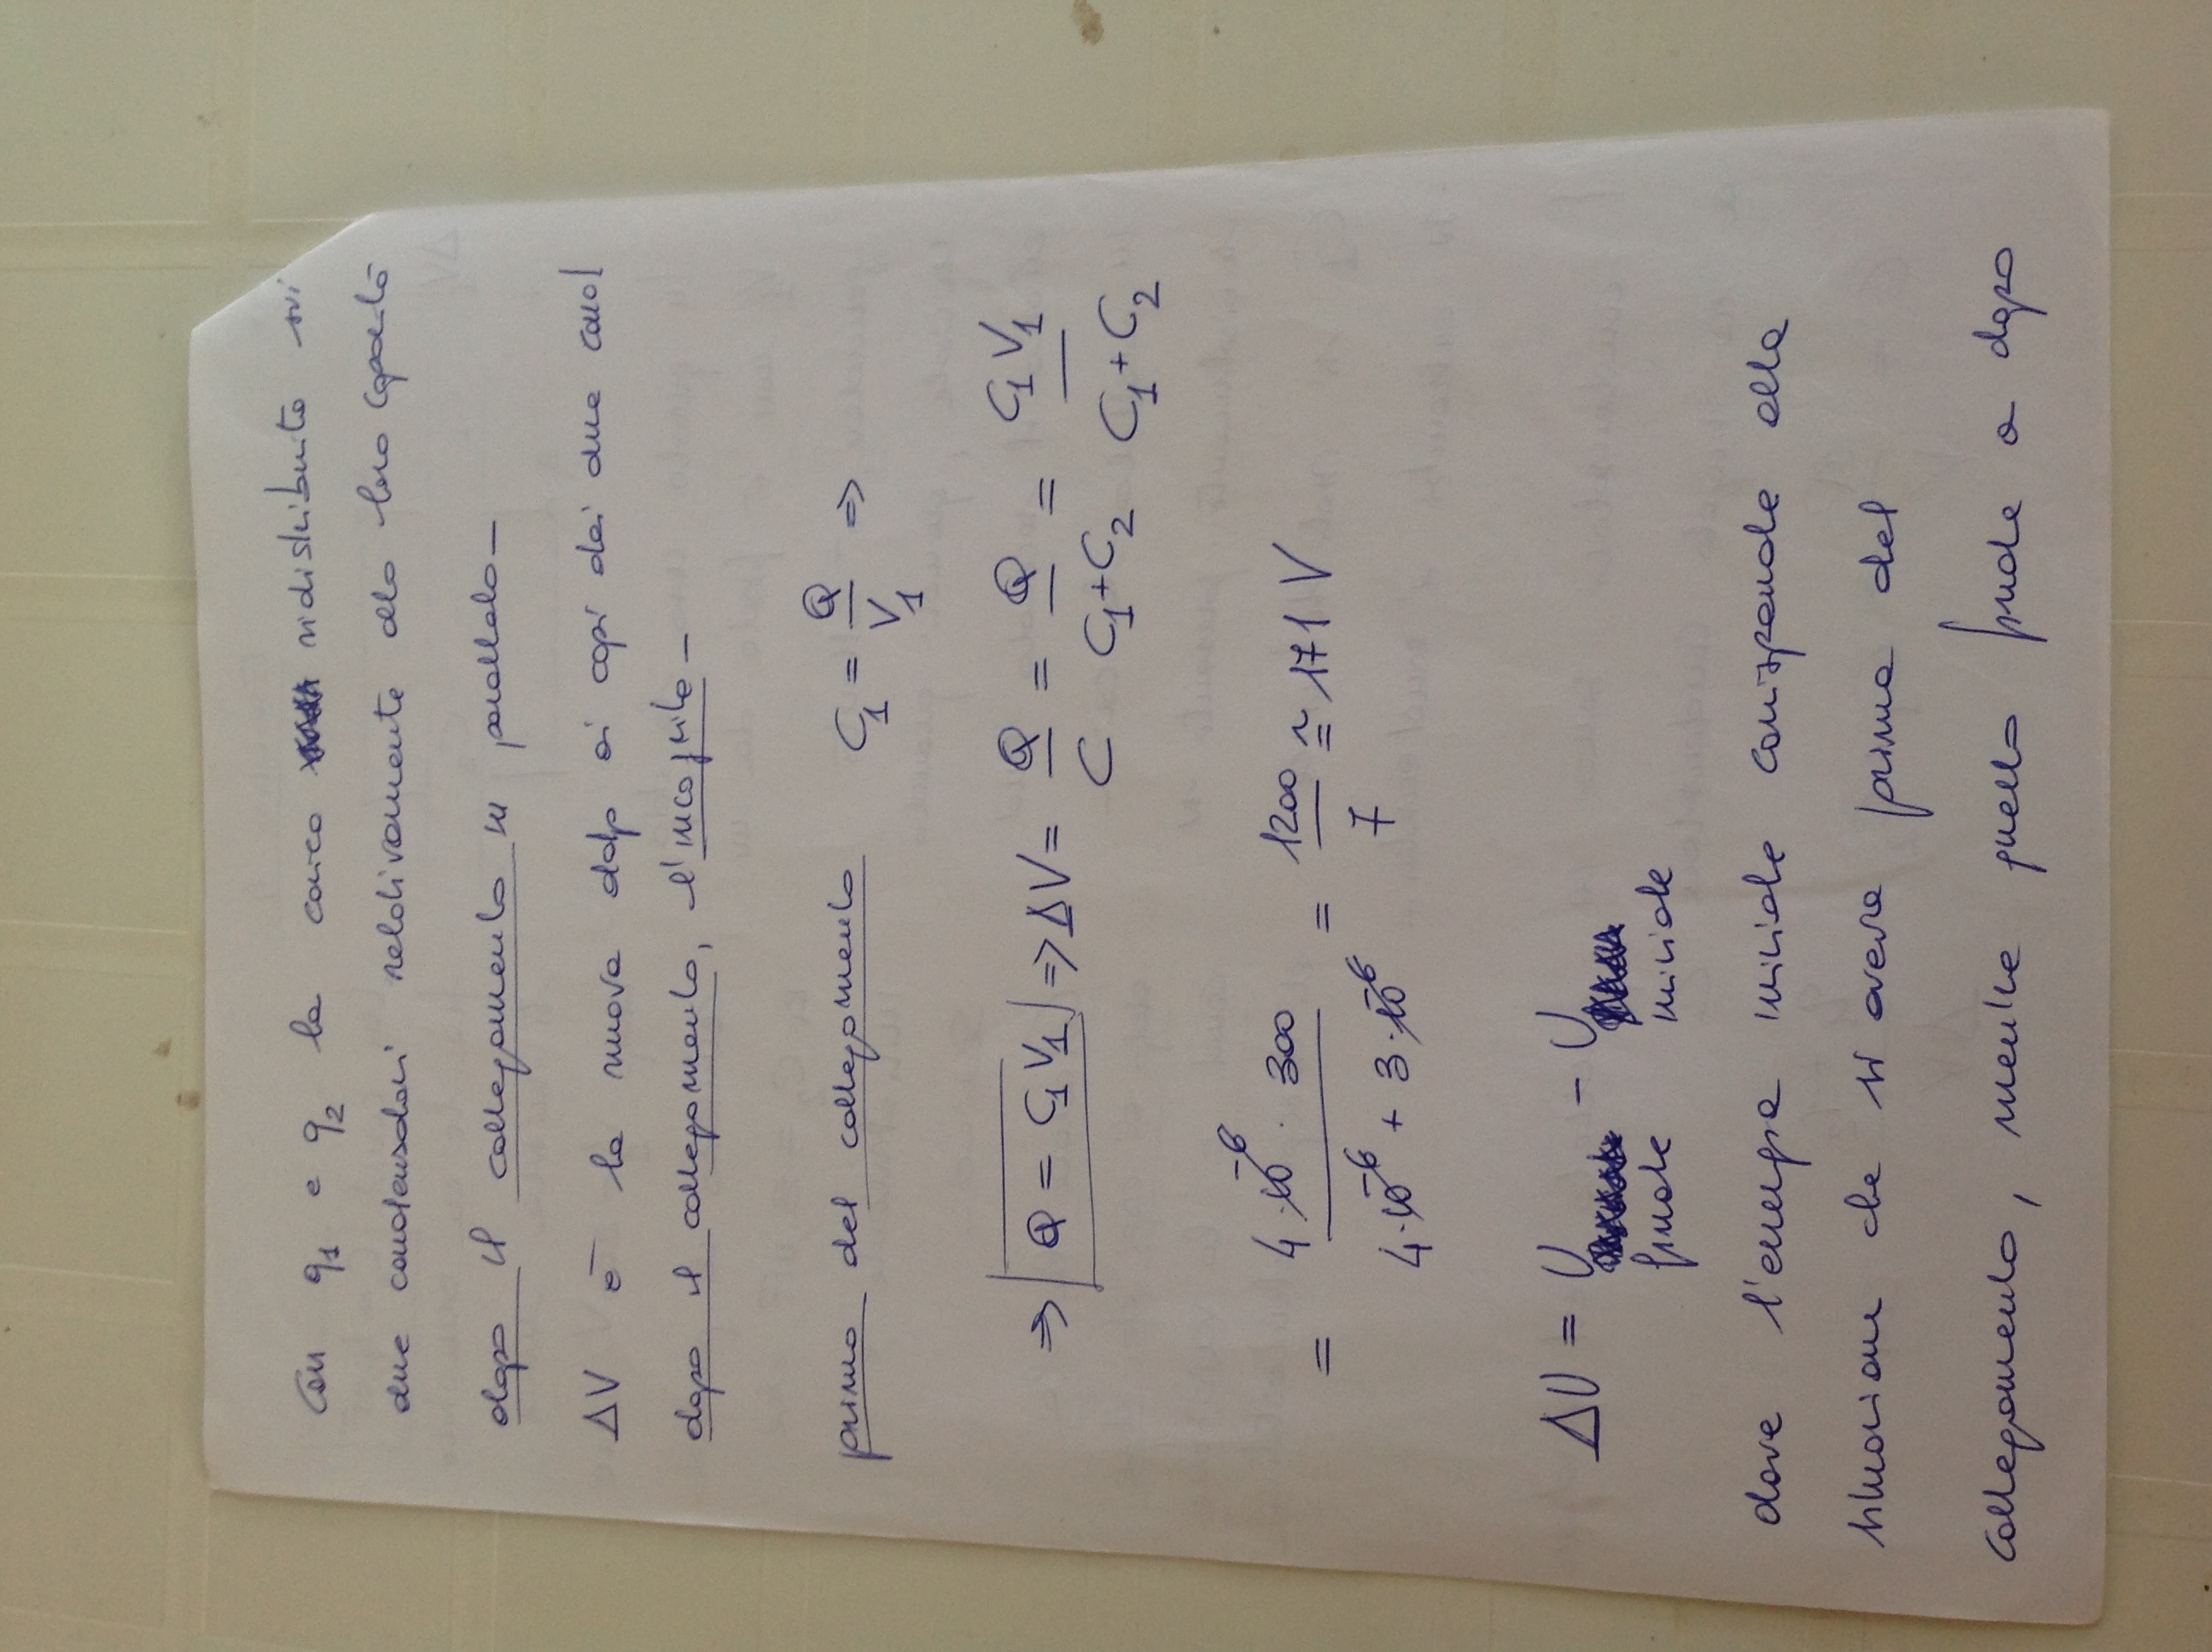 Con q1 e q2 la carica ridistribuita sui
due condensatori relativamente alla loro capacità
dopo il collegamento in parallelo -
ΔV è la nuova ddp ai capi dei due cond
dopo il collegamento, l'incognita -
prima del collegamento C1 = Q/V1 ⇒
⇒ Q = C1 V1 ⇒ ΔV = Q/C = Q/(C1+C2) = C1 V1/(C1+C2)
= (4·10^-6 · 300)/(4·10^-6 + 3·10^-6) = 1200/7 ≅ 171 V
ΔU = U finale - U iniziale
dove l'energia iniziale corrisponde alla
situazione che si aveva prima del
collegamento, mentre quella finale a dopo